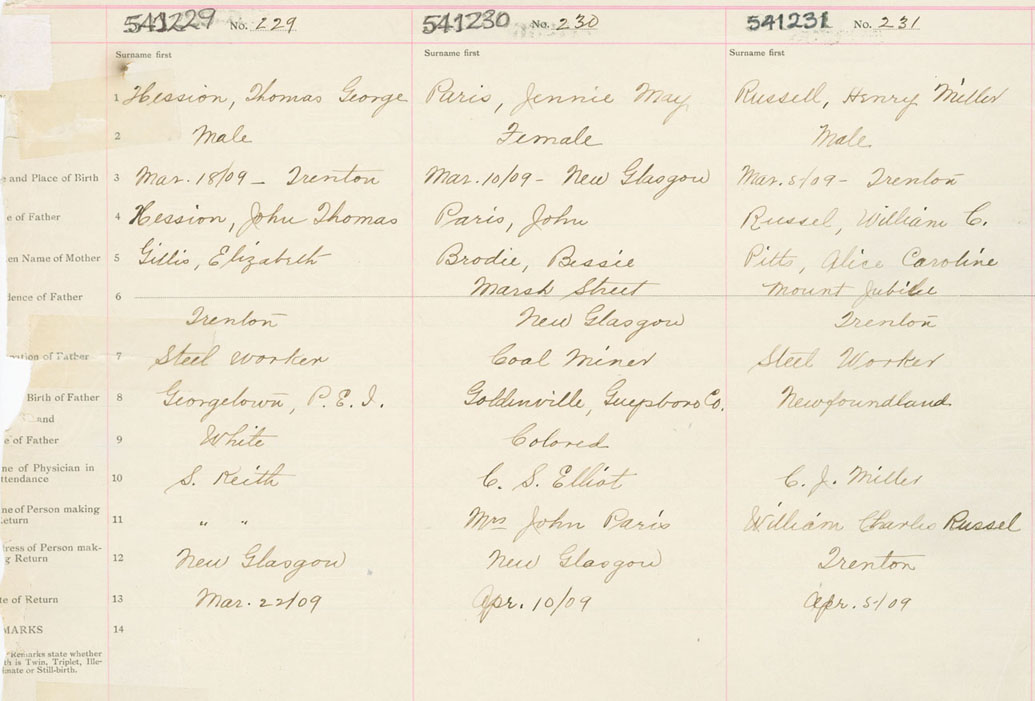 541229 No. 229 541230 No. 230 541231 No. 231
Surname first Surname first Surname first
1 Hession, Thomas George Paris, Jennie May Russell, Henry Miller
2 Male Female Male
e and Place of Birth 3 Mar. 18/09 – Trenton Mar. 10/09 – New Glasgow Mar. 5/09 – Trenton
e of Father 4 Hession, John Thomas Paris, John Russel, William C.
en Name of Mother 5 Gillis, Elizabeth Brodie, Bessie Pitts, Alice Caroline
Marsh Street Mount Jubilee
dence of Father 6
Trenton New Glasgow Trenton
ation of Father 7 Steel worker Coal Miner Steel Worker
Birth of Father 8 Georgetown, P.E.I. Goldinville, Guysboro Co. Newfoundland
and
e of Father 9 White Colored
ne of Physician in
ttendance 10 S. Keith C. S. Elliot C. J. Miller
ne of Person making
eturn 11 " " Mrs John Paris William Charles Russel
tress of Person mak-
g Return 12 New Glasgow New Glasgow Trenton
te of Return 13 Mar. 22/09 Apr. 10/09 Apr. 5/09
MARKS 14
"Remarks state whether
th is Twin, Triplet, Ille-
imate or Still-birth.